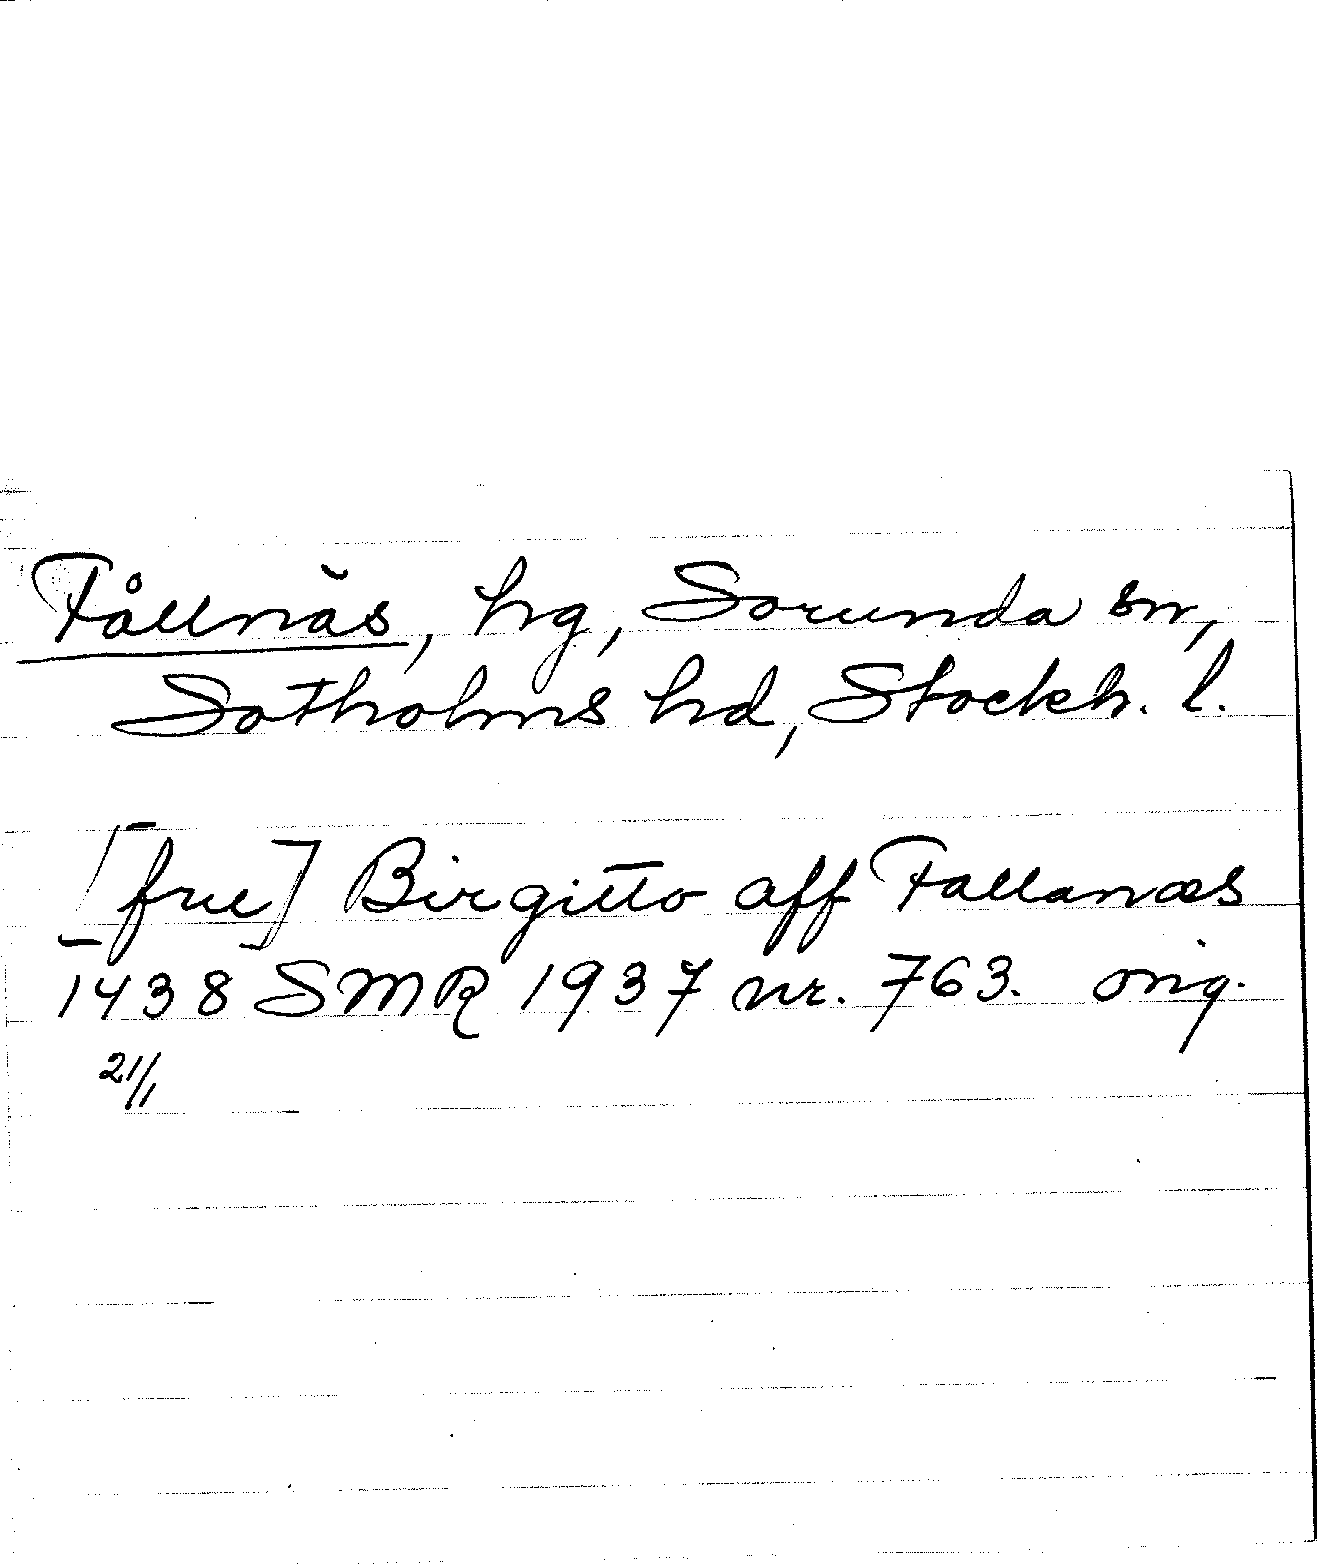 Fållnäs, hg, Sorunda sn,
Sotholms hd, Stockh. l.
[frue] Birgitto aff Fallanæs
1438 SMR 1937 nr. 763. orig.
21/1